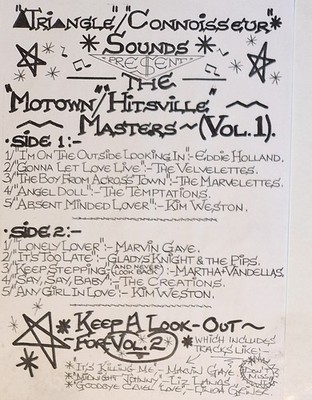 "Triangle"/"Connoisseur"
Sounds
Present
The
"Motown"/"Hitsville"
Masters~(Vol.1).
Side 1:-
1/ "I'm On The Outside Looking In":- Eddie Holland.
2/ "Gonna Let Love Live":- The Velvelettes.
3/ "The Boy From Across Town":- The Marvelettes.
4/ "Angel Doll":- The Temptations.
5/ "Absent Minded Lover":- Kim Weston.
Side 2:-
1/ "Lonely Lover":- Marvin Gaye.
2/ "It's Too Late":- Gladys Knight & The Pips.
3/ "Keep Stepping (And Never Look Back)":- Martha+Vandellas.
4/ "Say, Say, Baby":- The Creations.
5/ "Any Girl In Love":- Kim Weston.
Keep A Look-Out~
For Vol. 2
which includes
tracks like:-
"It's Killing Me":- Marvin Gaye
"Midnight Johnny":- Liz Lands
"Goodbye Cruel Love":- Linda Griner
Don't Miss